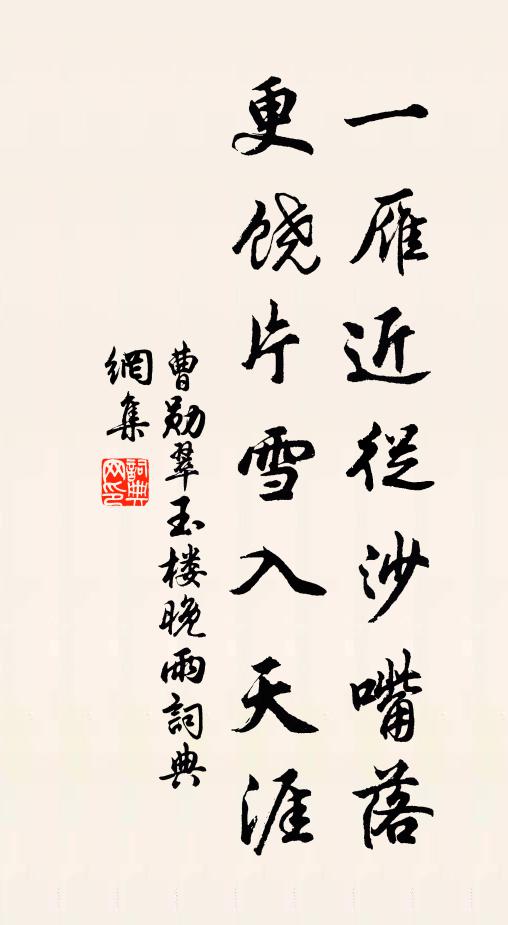 一雁近從沙嘴落
更饶片雪入天涯
曹勋翠玉楼晚雨詞典
網集
詞典
网印